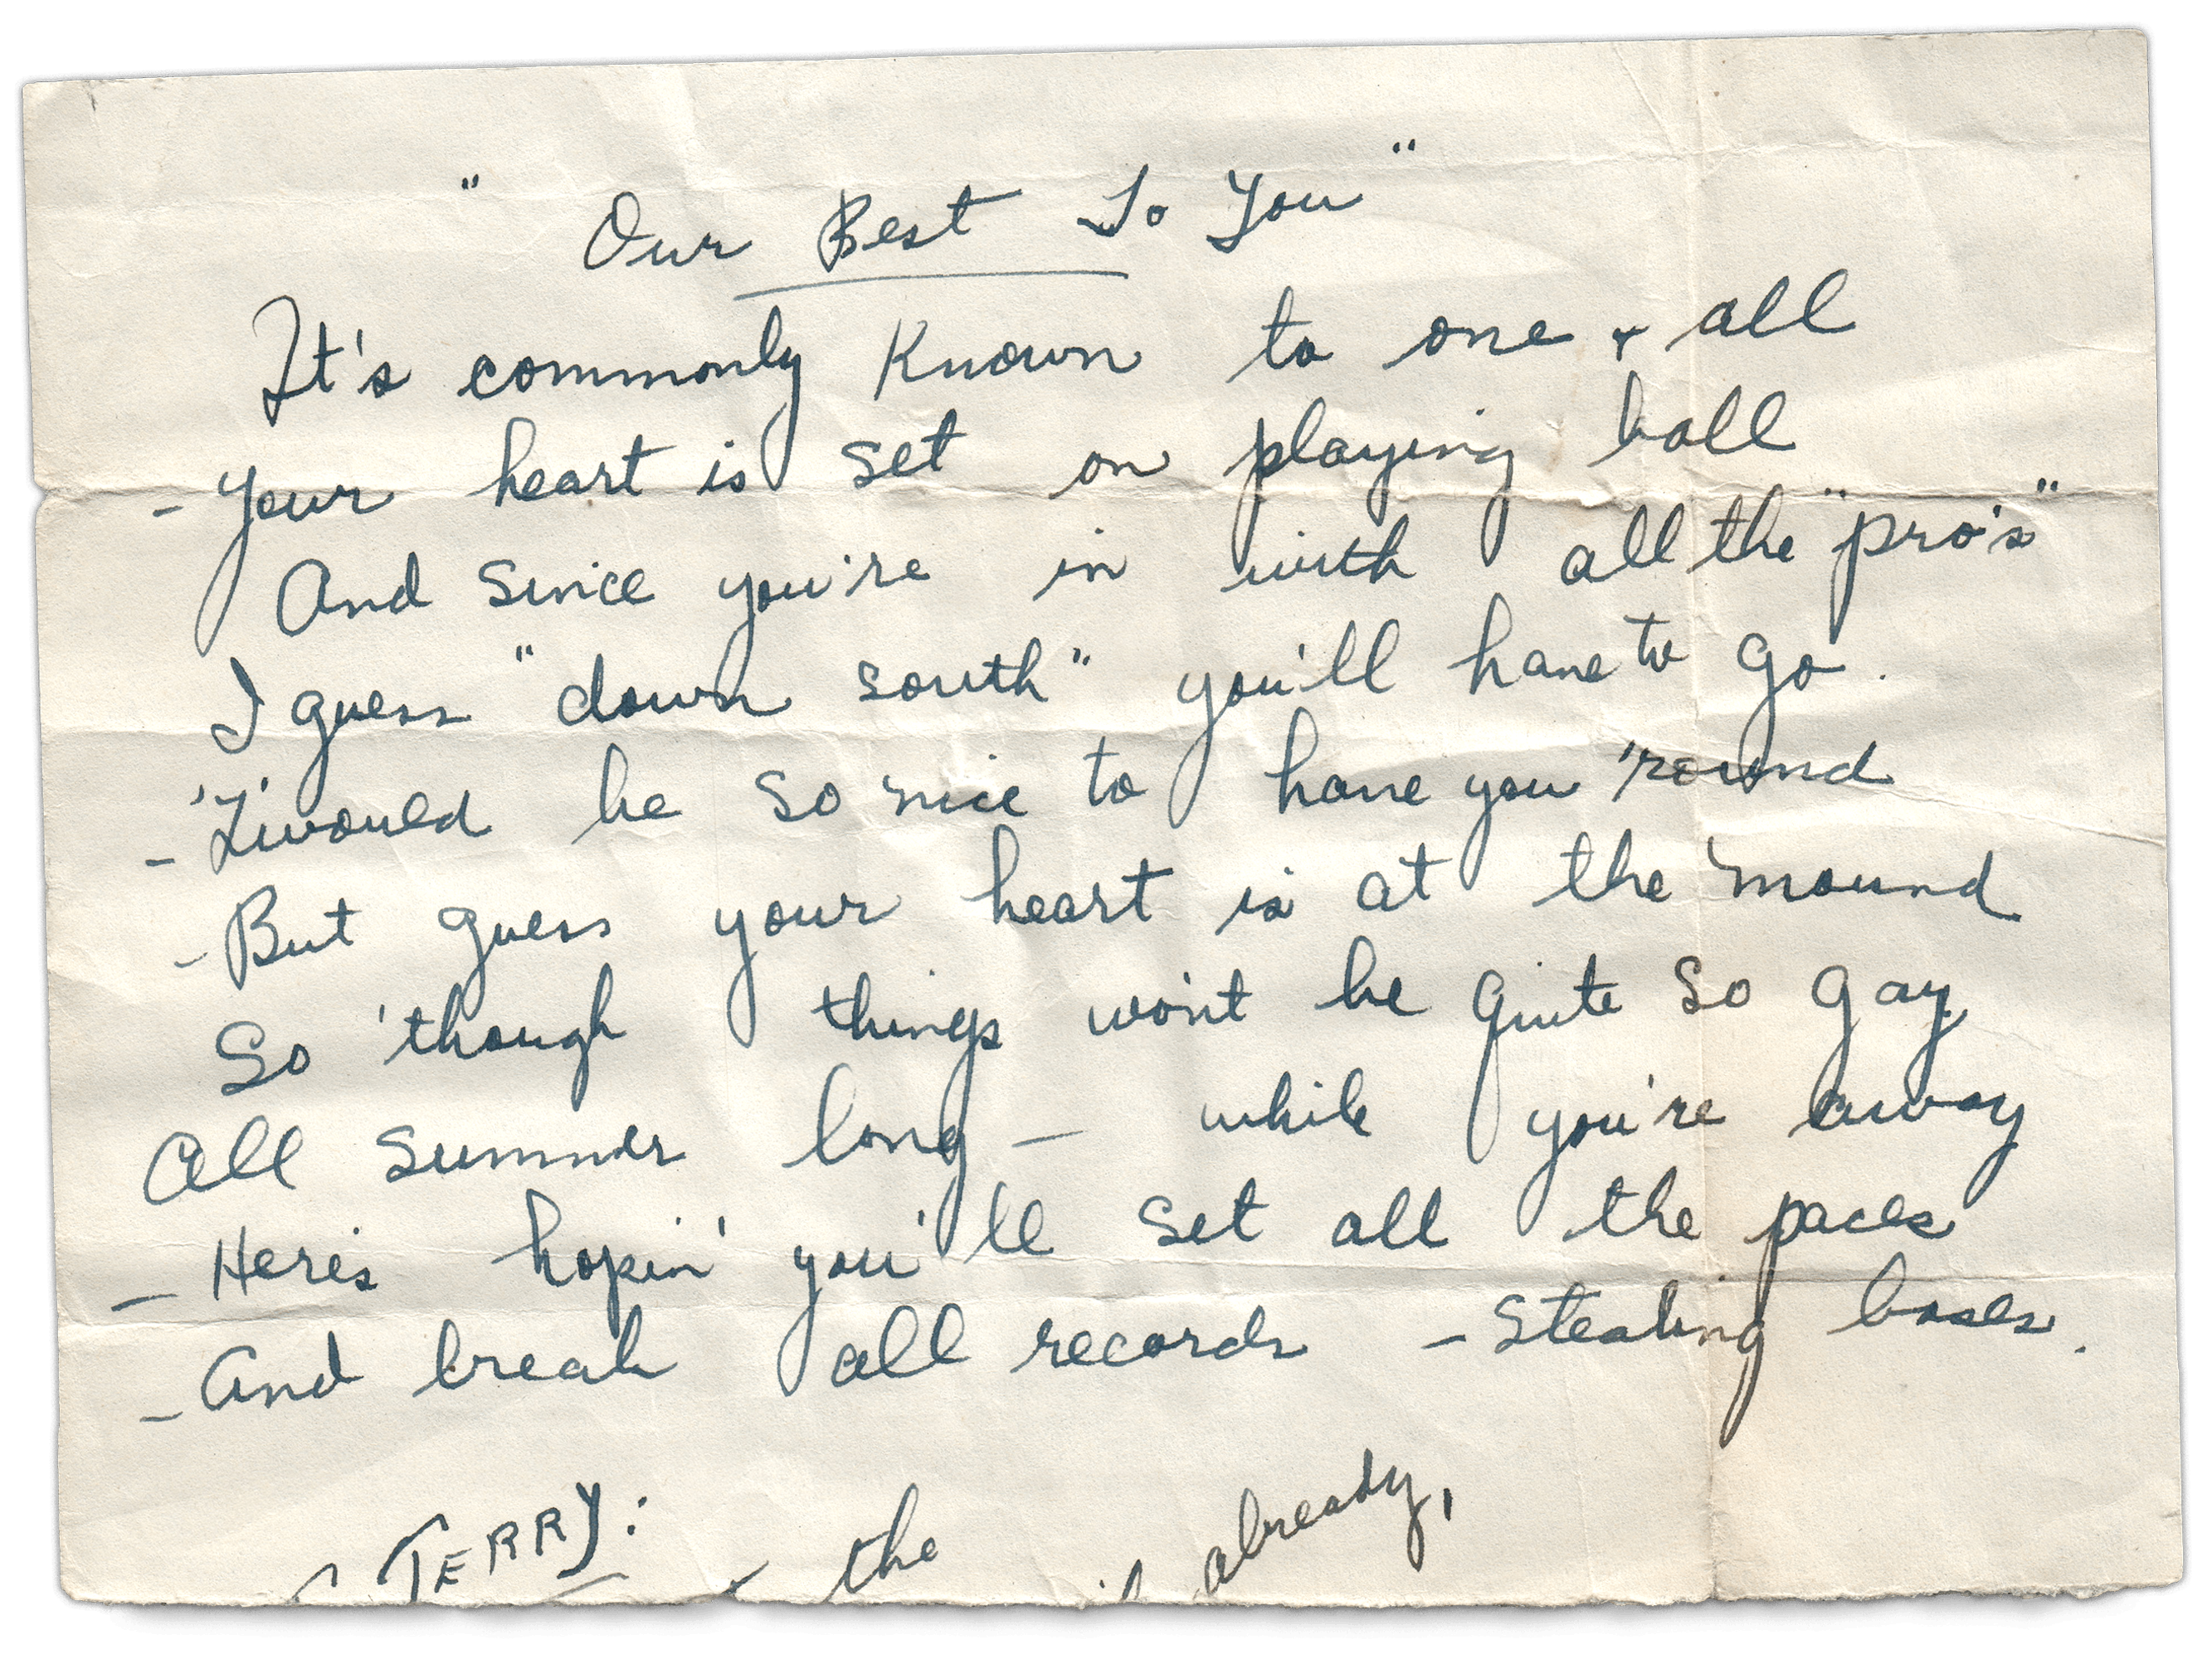 " Our Best To You "
It's commonly Known to one + all
- Your heart is set on playing ball
And since you're in with all the "pro's"
I guess "down south" you'll have to go.
- 'Twould be so nice to have you 'round
- But guess your heart is at the mound
So 'though things won't be quite so gay
All summer long - while you're away
- Here's hopin' you'll set all the paces
- And break all records - stealing bases.
TERRY:
the already,